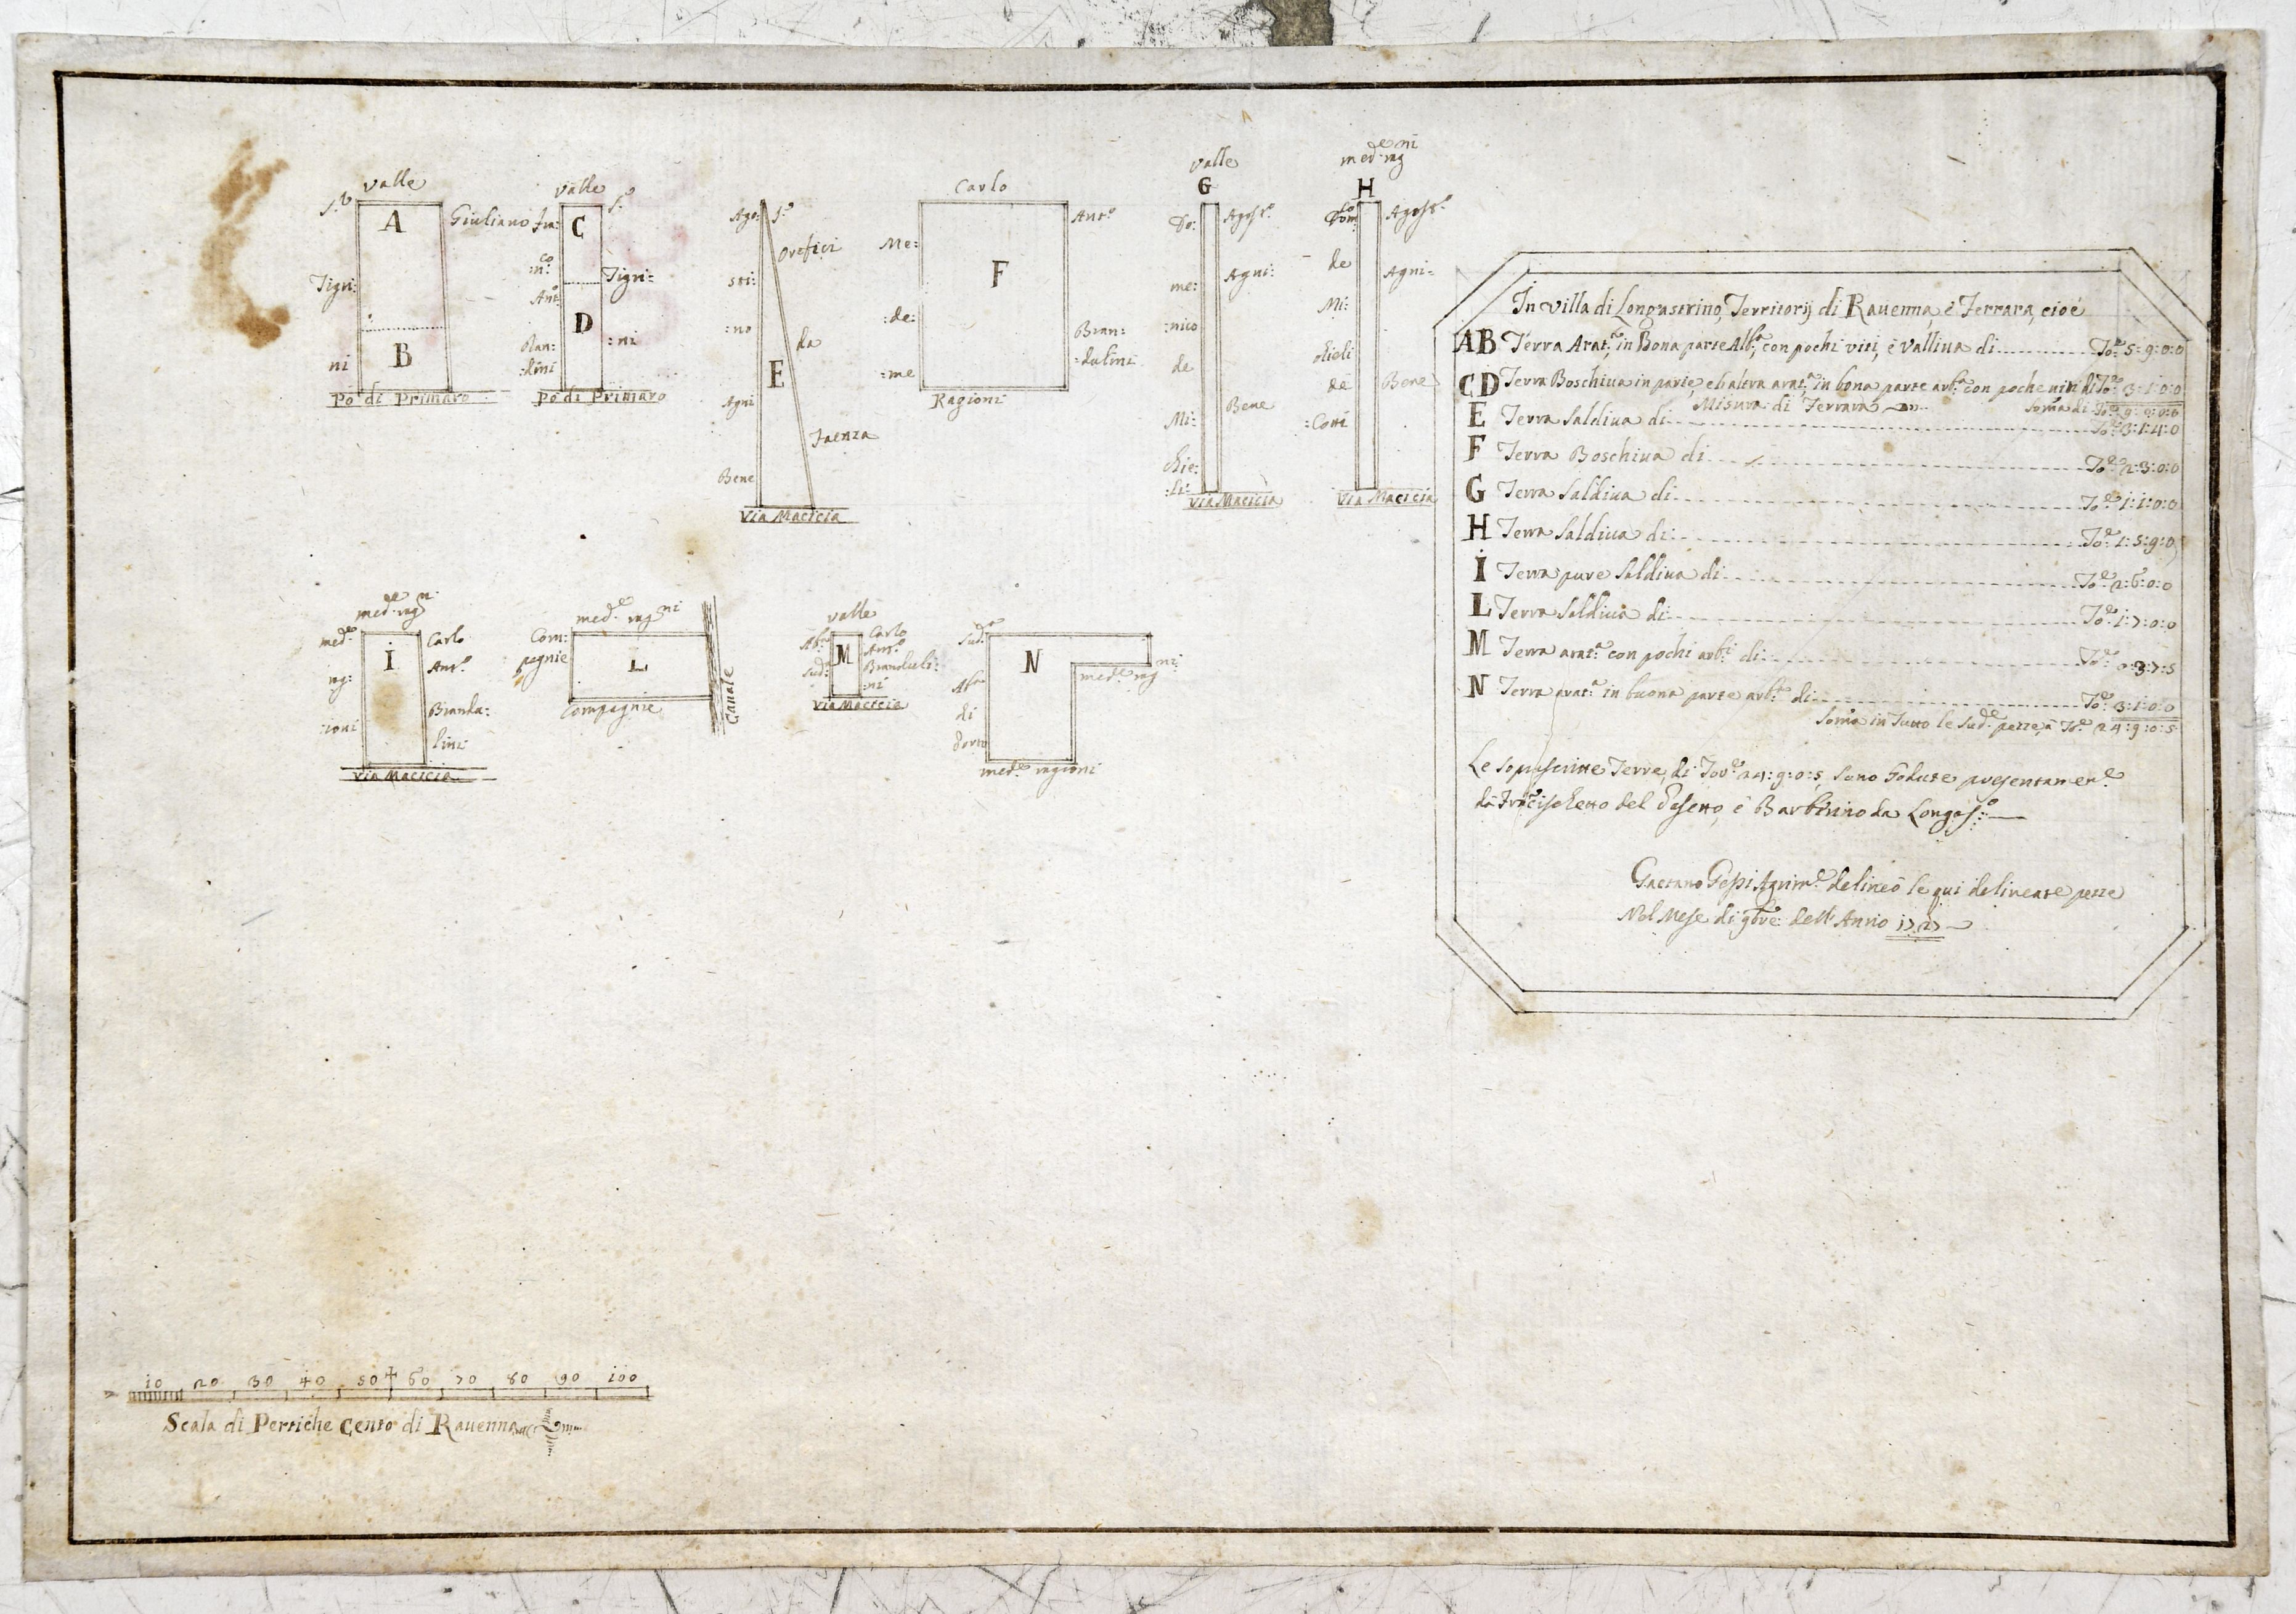 valle
S.r
A
Giuliano
Tigri:
ni
B
Po di Primaro
valle
Fra:
S.r
C
:n:co
Tigri=
Ant.o
D
:ni
:dini
Po di Primaro
Ago:
S.r
Orefici
sti:
:no
da
E
Agni
Faenza
Bene
Via Macicia
Carlo
Me:
Ant.o
F
:de:
Bran:
:dulini
:me
Ragioni
valle
G
Do:
Agost.o
me:
Agni:
:nico
de
Bene
Mi:
chie:
:li:
Via Macicia
med.e rag.ni
H
Dom.co
Agost.o
de
Agni=
Mi:
chieli
de
Bene
:Coni
Via Macicia
med.e rag.ni
med.e
Carlo
I
Ant.o
rag:
Brandu:
:ioni
lini
Via Macicia
med.e rag.ni
Com:
pagnie
L
Compagnie
Canale
valle
Carlo
Ant.o
M
Branduli:
:ni
Via Macicia
Sud.a
N
med.e rag.ni
di
Porto
med.e ragioni
In Villa di Longastrino, Territorij di Rauenna, è Ferrara, cioè
AB Terra Arat.a, in Bona parte Alb.a, con pochi viti, è Valliua di To.e 5:9:0:0
CD Terra Boschiua in parte, e l'altra arat.a, in bona parte arb.a con poche viti di To.e 3:1:0:0
Misura di Ferrara
Soma di To.e 9:0:0:0
E Terra Saldiua di To.e 3:1:4:0
F Terra Boschiua di To.e 2:3:0:0
G Terra Saldiua di To.e 1:1:0:0
H Terra Saldiua di To.e 1:5:9:0
I Terra pure Saldiua di To.e 2:6:0:0
L Terra Saldiua di To.e 1:7:0:0
M Terra arat.a con pochi arb.i di To.e 0:3:7:5
N Terra arat.a in buona parte arb.a di To.e 3:1:0:0
Soma in Tutto le Sud.e pezze, à To.e 24:9:0:5
Le soprascritte Terre, di Tor.e 24:9:0:5, sono Godute presentamen.e
da Francischetto del Pasetto, è Barbirino da Longas.o
Gaetano Gessi Agrim.e delineò le qui delineate pezze
Nel Mese di 9bre: dell'Anno 1727
10 20 30 40 50 60 70 80 90 100
Scala di Pertiche Cento di Rauenna